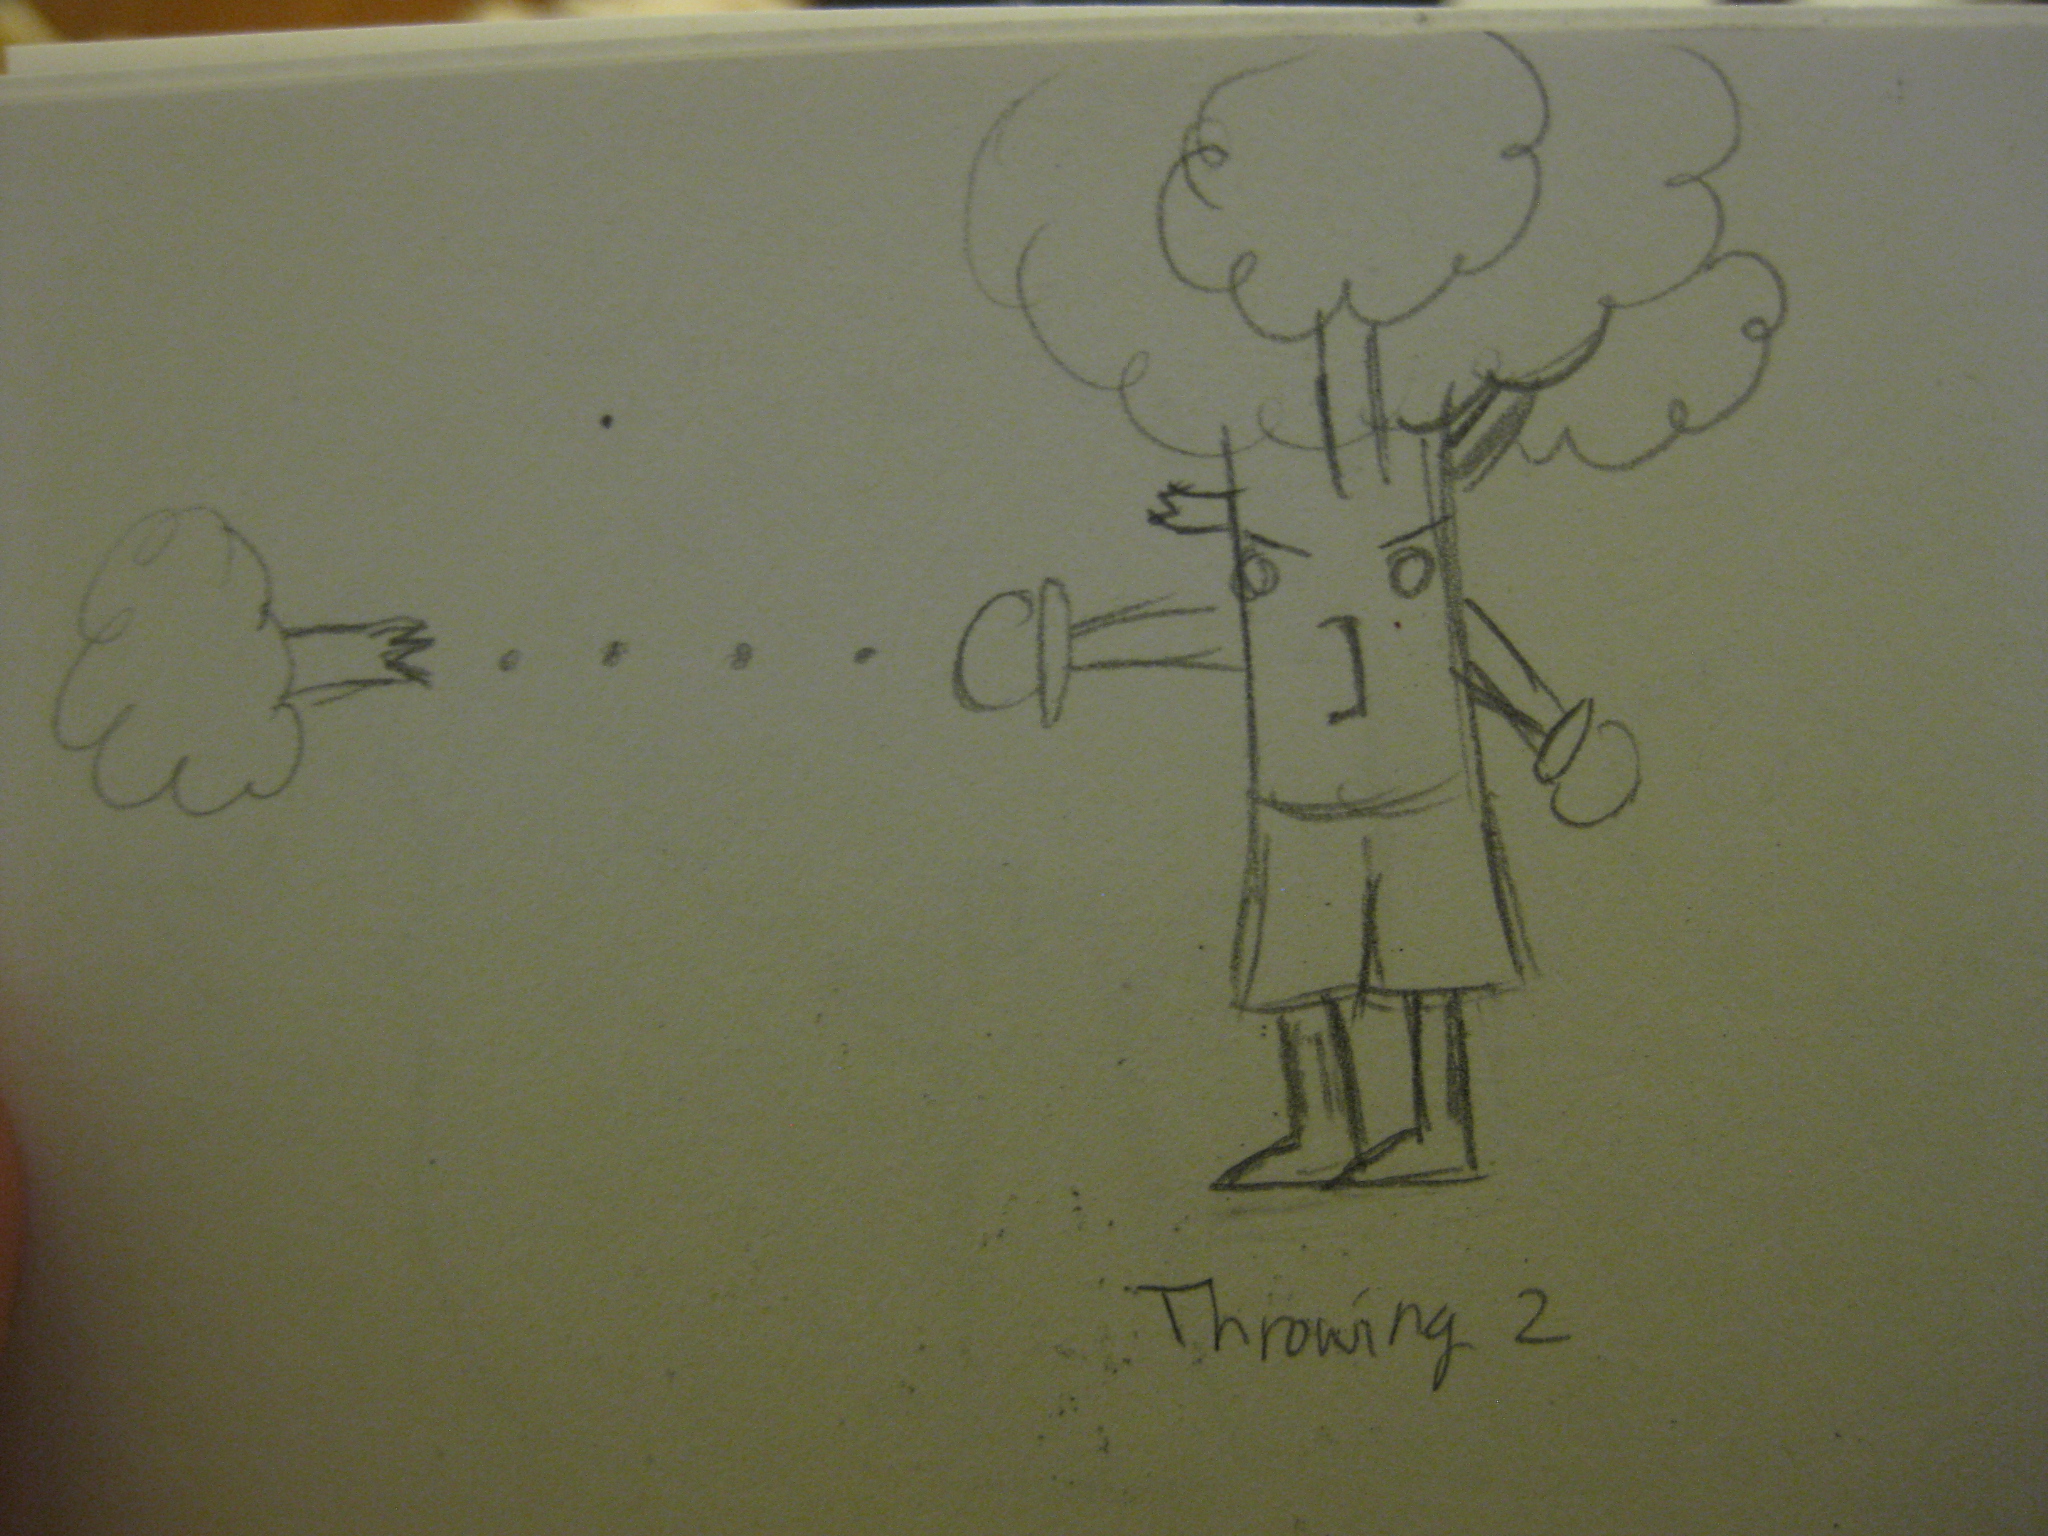 Throwing 2